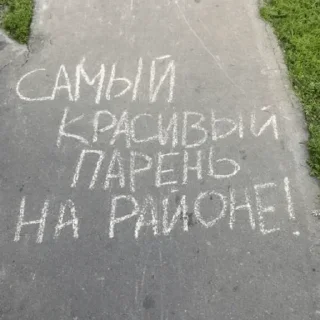 САМЫЙ
КРАСИВЫЙ
ПАРЕНЬ
НА РАЙОНЕ!